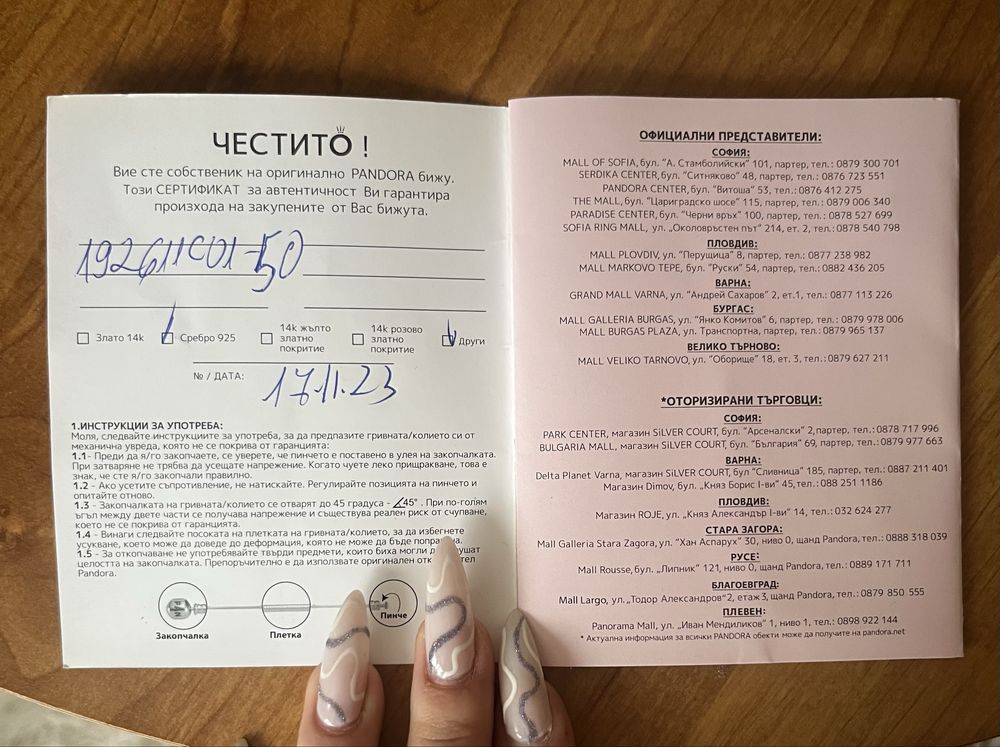 ЧЕСТИТО !
Вие сте собственик на оригинално PANDORA бижу.
Този СЕРТИФИКАТ за автентичност Ви гарантира
произхода на закупените от Вас бижута.
192611C01-50
Злато 14k
Сребро 925
14k жълто
златно
покритие
14k розово
златно
покритие
Други
№ / ДАТА:
17.11.23
1.ИНСТРУКЦИИ ЗА УПОТРЕБА:
Моля, следвайте инструкциите за употреба, за да предпазите гривната/колието си от
механична увреда, която не се покрива от гаранцията:
1.1- Преди да я/го закопчаете, се уверете, че пинчето е поставено в улея на закопчалката.
При затваряне не трябва да усещате напрежение. Когато чуете леко прищракване, това е
знак, че сте я/го закопчали правилно.
1.2 - Ако усетите съпротивление, не натискайте. Регулирайте позицията на пинчето и
опитайте отново.
1.3 - Закопчалката на гривната/колието се отварят до 45 градуса - ∠45° . При по-голям
ъгъл между двете части се получава напрежение и съществува реален риск от счупване,
което не се покрива от гаранцията.
1.4 - Винаги следвайте посоката на плетката на гривната/колието, за да избегнете
усукване, което може да доведе до деформация, която не може да бъде поправ
1.5 - За откопчаване не употребявайте твърди предмети, които биха могли д ушат
целостта на закопчалката. Препоръчително е да използвате оригинален отк тел
Pandora.
Закопчалка
Плетка
Пинче
ОФИЦИАЛНИ ПРЕДСТАВИТЕЛИ:
СОФИЯ:
MALL OF SOFIA, бул. "А. Стамболийски" 101, партер, тел.: 0879 300 701
SERDIKA CENTER, бул. "Ситняково" 48, партер, тел.: 0876 723 551
PANDORA CENTER, бул. "Витоша" 53, тел.: 0876 412 275
THE MALL, бул. "Цариградско шосе" 115, партер, тел.: 0879 006 340
PARADISE CENTER, бул. "Черни връх" 100, партер, тел.: 0878 527 699
SOFIA RING MALL, ул. „Околовръстен път" 214, ет. 2, тел.: 0878 540 798
ПЛОВДИВ:
MALL PLOVDIV, ул. "Перущица" 8, партер, тел.: 0877 238 982
MALL MARKOVO TEPE, бул. "Руски" 54, партер, тел.: 0882 436 205
ВАРНА:
GRAND MALL VARNA, ул. "Андрей Сахаров" 2, ет.1, тел.: 0877 113 226
БУРГАС:
MALL GALLERIA BURGAS, ул. "Янко Комитов" 6, партер, тел.: 0879 978 006
MALL BURGAS PLAZA, ул. Транспортна, партер, тел.: 0879 965 137
ВЕЛИКО ТЪРНОВО:
MALL VELIKO TARNOVO, ул. "Оборище" 18, ет. 3, тел.: 0879 627 211
*ОТОРИЗИРАНИ ТЪРГОВЦИ:
СОФИЯ:
PARK CENTER, магазин SiLVER COURT, бул. "Арсеналски" 2, партер, тел.: 0878 717 996
BULGARIA MALL, магазин SiLVER COURT, бул. "България" 69, партер, тел.: 0879 977 663
ВАРНА:
Delta Planet Varna, магазин SiLVER COURT, бул "Сливница" 185, партер, тел.: 0887 211 401
Магазин Dimov, бул. „Княз Борис I-ви" 45, тел.: 088 251 1186
ПЛОВДИВ:
Магазин ROJE, ул. „Княз Александър I-ви" 14, тел.: 032 624 277
СТАРА ЗАГОРА:
Mall Galleria Stara Zagora, ул. "Хан Аспарух" 30, ниво 0, щанд Pandora, тел.: 0888 318 039
РУСЕ:
Mall Rousse, бул. „Липник" 121, ниво 0, щанд Pandora, тел.: 0889 171 711
БЛАГОЕВГРАД:
Mall Largo, ул. „Тодор Александров" 2, етаж 3, щанд Pandora, тел.: 0879 850 555
ПЛЕВЕН:
Panorama Mall, ул. „Иван Мендиликов" 1, ниво 1, тел.: 0898 922 144
* Актуална информация за всички PANDORA обекти може да получите на pandora.net